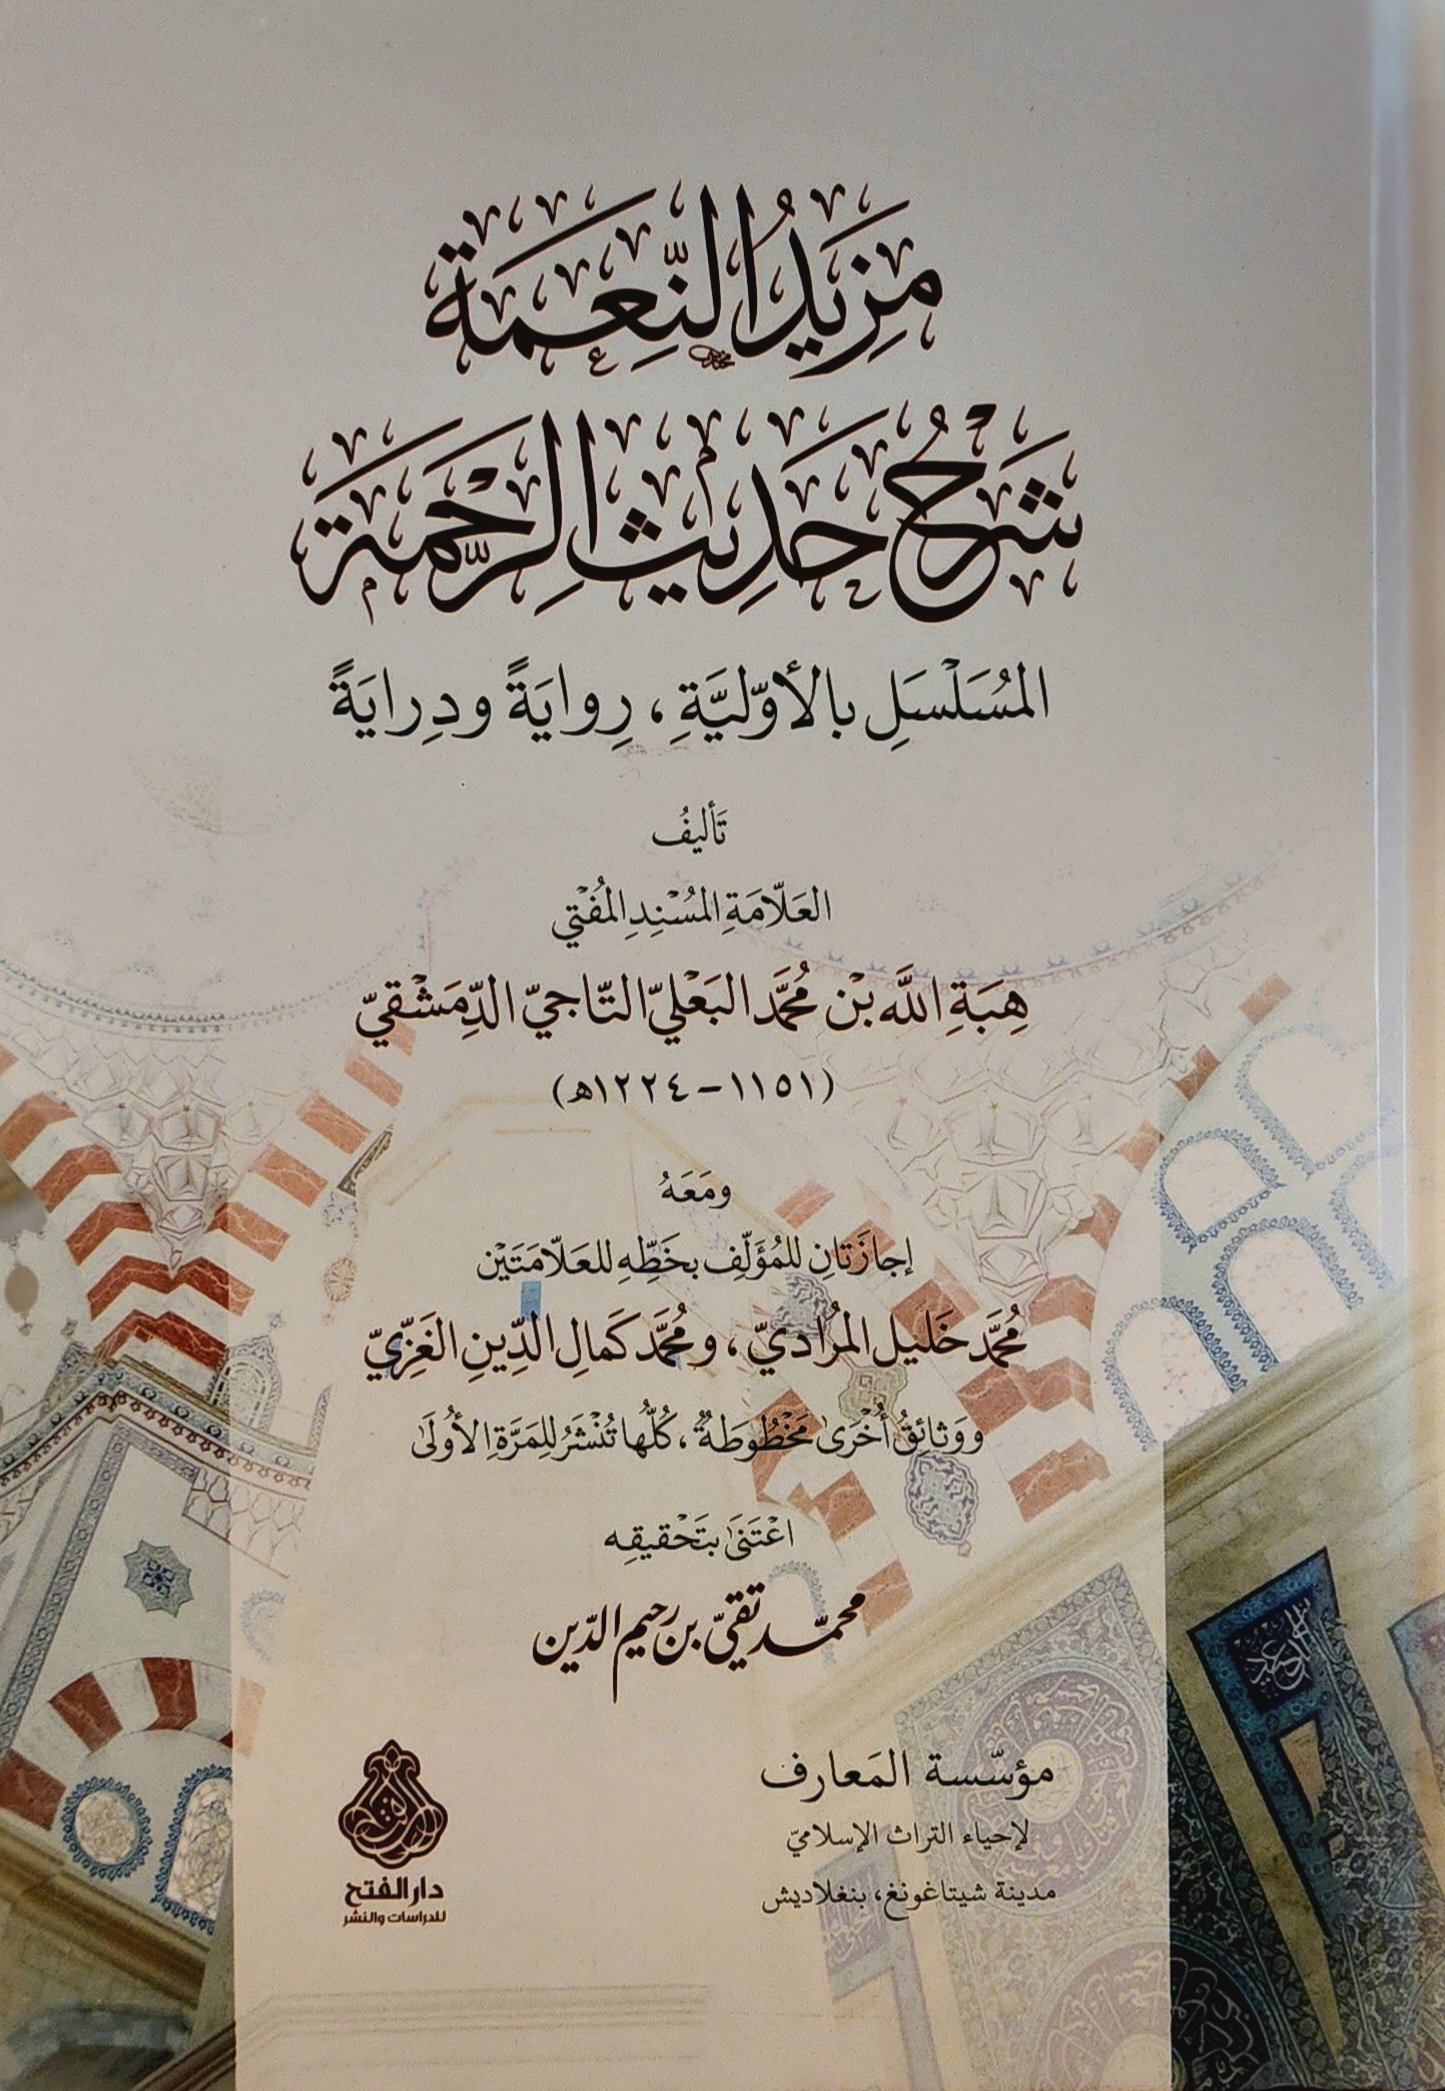 مَزِيدُ النِّعْمَة
شَرْحُ حَدِيثِ الرَّحْمَة
المُسَلْسَلِ بالأوّليَّةِ، رِوايَةً ودِرايَةً
تَأليفُ
العَلّامَةِ المُسْنِدِ المُفْتي
هِبَةِ اللَّه بْن مُحَمَّد البَعْليّ التّاجيّ الدِّمَشْقيّ
(١١٥١ - ١٢٢٤هـ)
ومَعَهُ
إجازَتانِ للمُؤَلِّفِ بخَطِّهِ للعَلّامَتَيْن
مُحَمَّد خَليل المُراديّ، ومُحَمَّد كَمالِ الدِّينِ الغَزِّيّ
ووَثائِقُ أُخْرَى مَخْطُوطَةٌ، كُلُّها تُنْشَرُ لِلمَرَّةِ الأُولَى
اعْتَنَى بتَحْقيقِه
محمّد تقيّ بن رحيم الدّين
مؤسّسة المَعارف
لإحياء التراث الإسلاميّ
مدينة شيتاغونغ، بنغلاديش
الفتح
دار الفتح
للدراسات والنشر